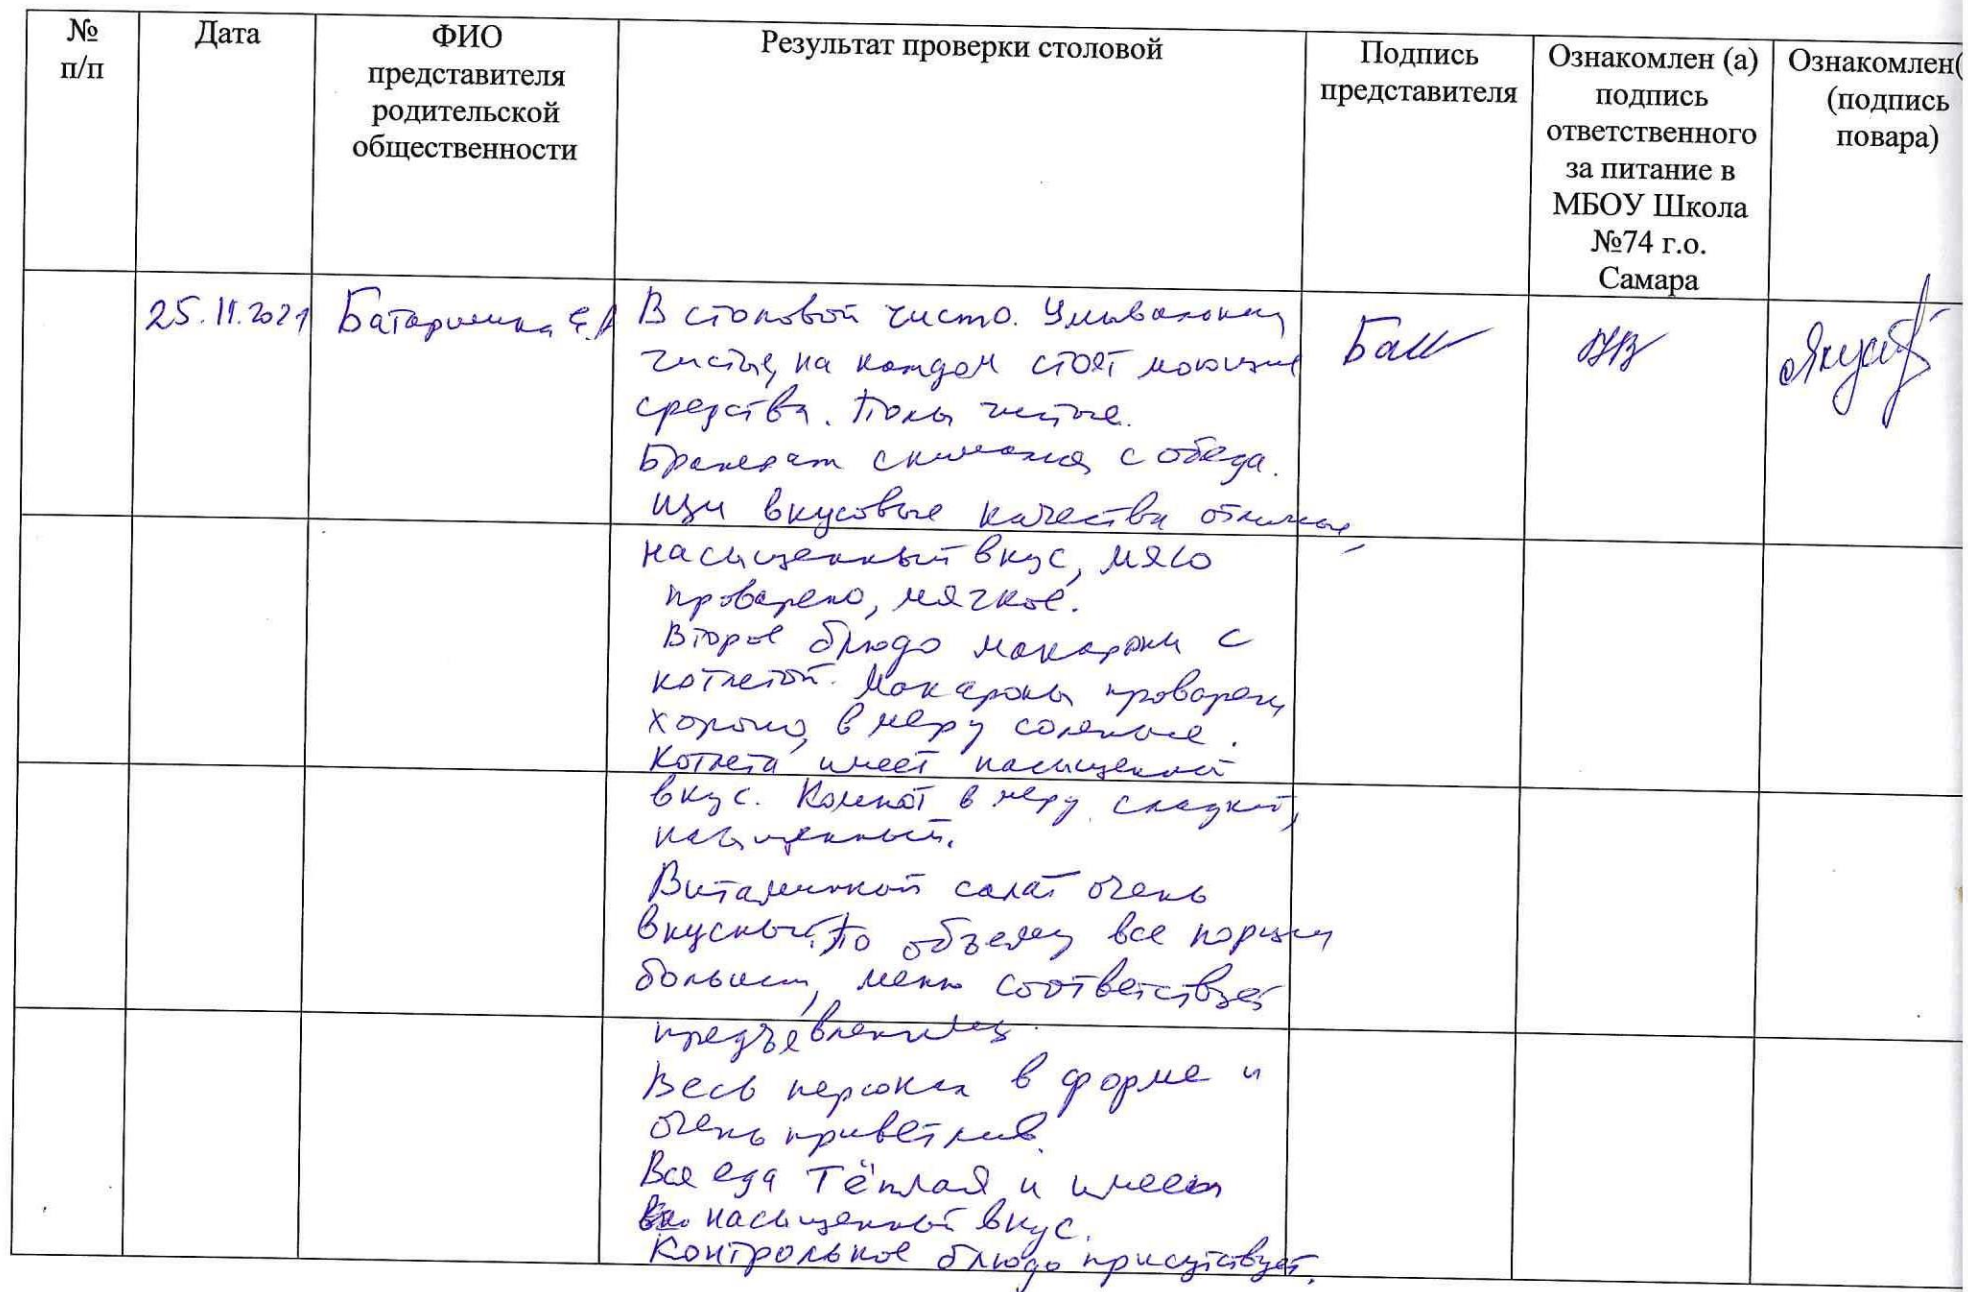 №
п/п
Дата
ФИО
представителя
родительской
общественности
Результат проверки столовой
Подпись
представителя
Ознакомлен (а)
подпись
ответственного
за питание в
МБОУ Школа
№74 г.о.
Самара
Ознакомлен(
(подпись
повара)
25.11.2021
В столовой чисто. Умывальники
чистые, на каждом стоят моющие
средства. Полы чистые.
Бракераж снимался с обеда.
Щи вкусовые качества отличные,
насыщенный вкус, мясо
проварено, мягкое.
Второе блюдо макароны с
котлетой. Макароны проварены
хорошо, в меру соленые.
Котлета имеет насыщенный
вкус. Компот в меру сладкий,
насыщенный.
Витаминный салат очень
вкусный. По объему все порции
большие, меню соответствует
предъявленному.
Весь персонал в форме и
очень приветлив.
Вся еда тёплая и имеет
насыщенный вкус.
Контрольное блюдо присутствует.